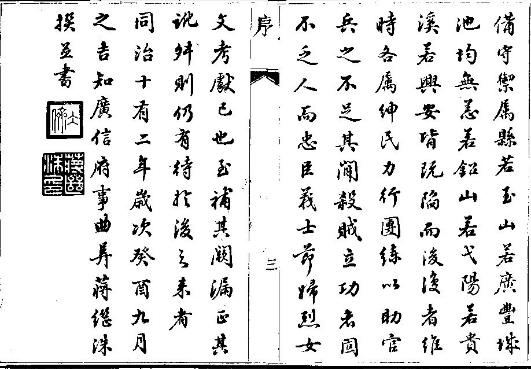 備守禦屬縣若玉山若廣豐城
池均無恙若鉛山若弋陽若貴
溪若興安皆阮陷而浚復者維
時各屬紳民力行團練以助官
兵之不足其間殺賊立功者固
不乏人而忠臣義士節婦烈女
序
三
文考獻已也至補其闕漏正其
訛舛則仍有待於後之来者
同治十有二年歲次癸酉九月
之吉知廣信府事曲阜蔣继洙
撰並書